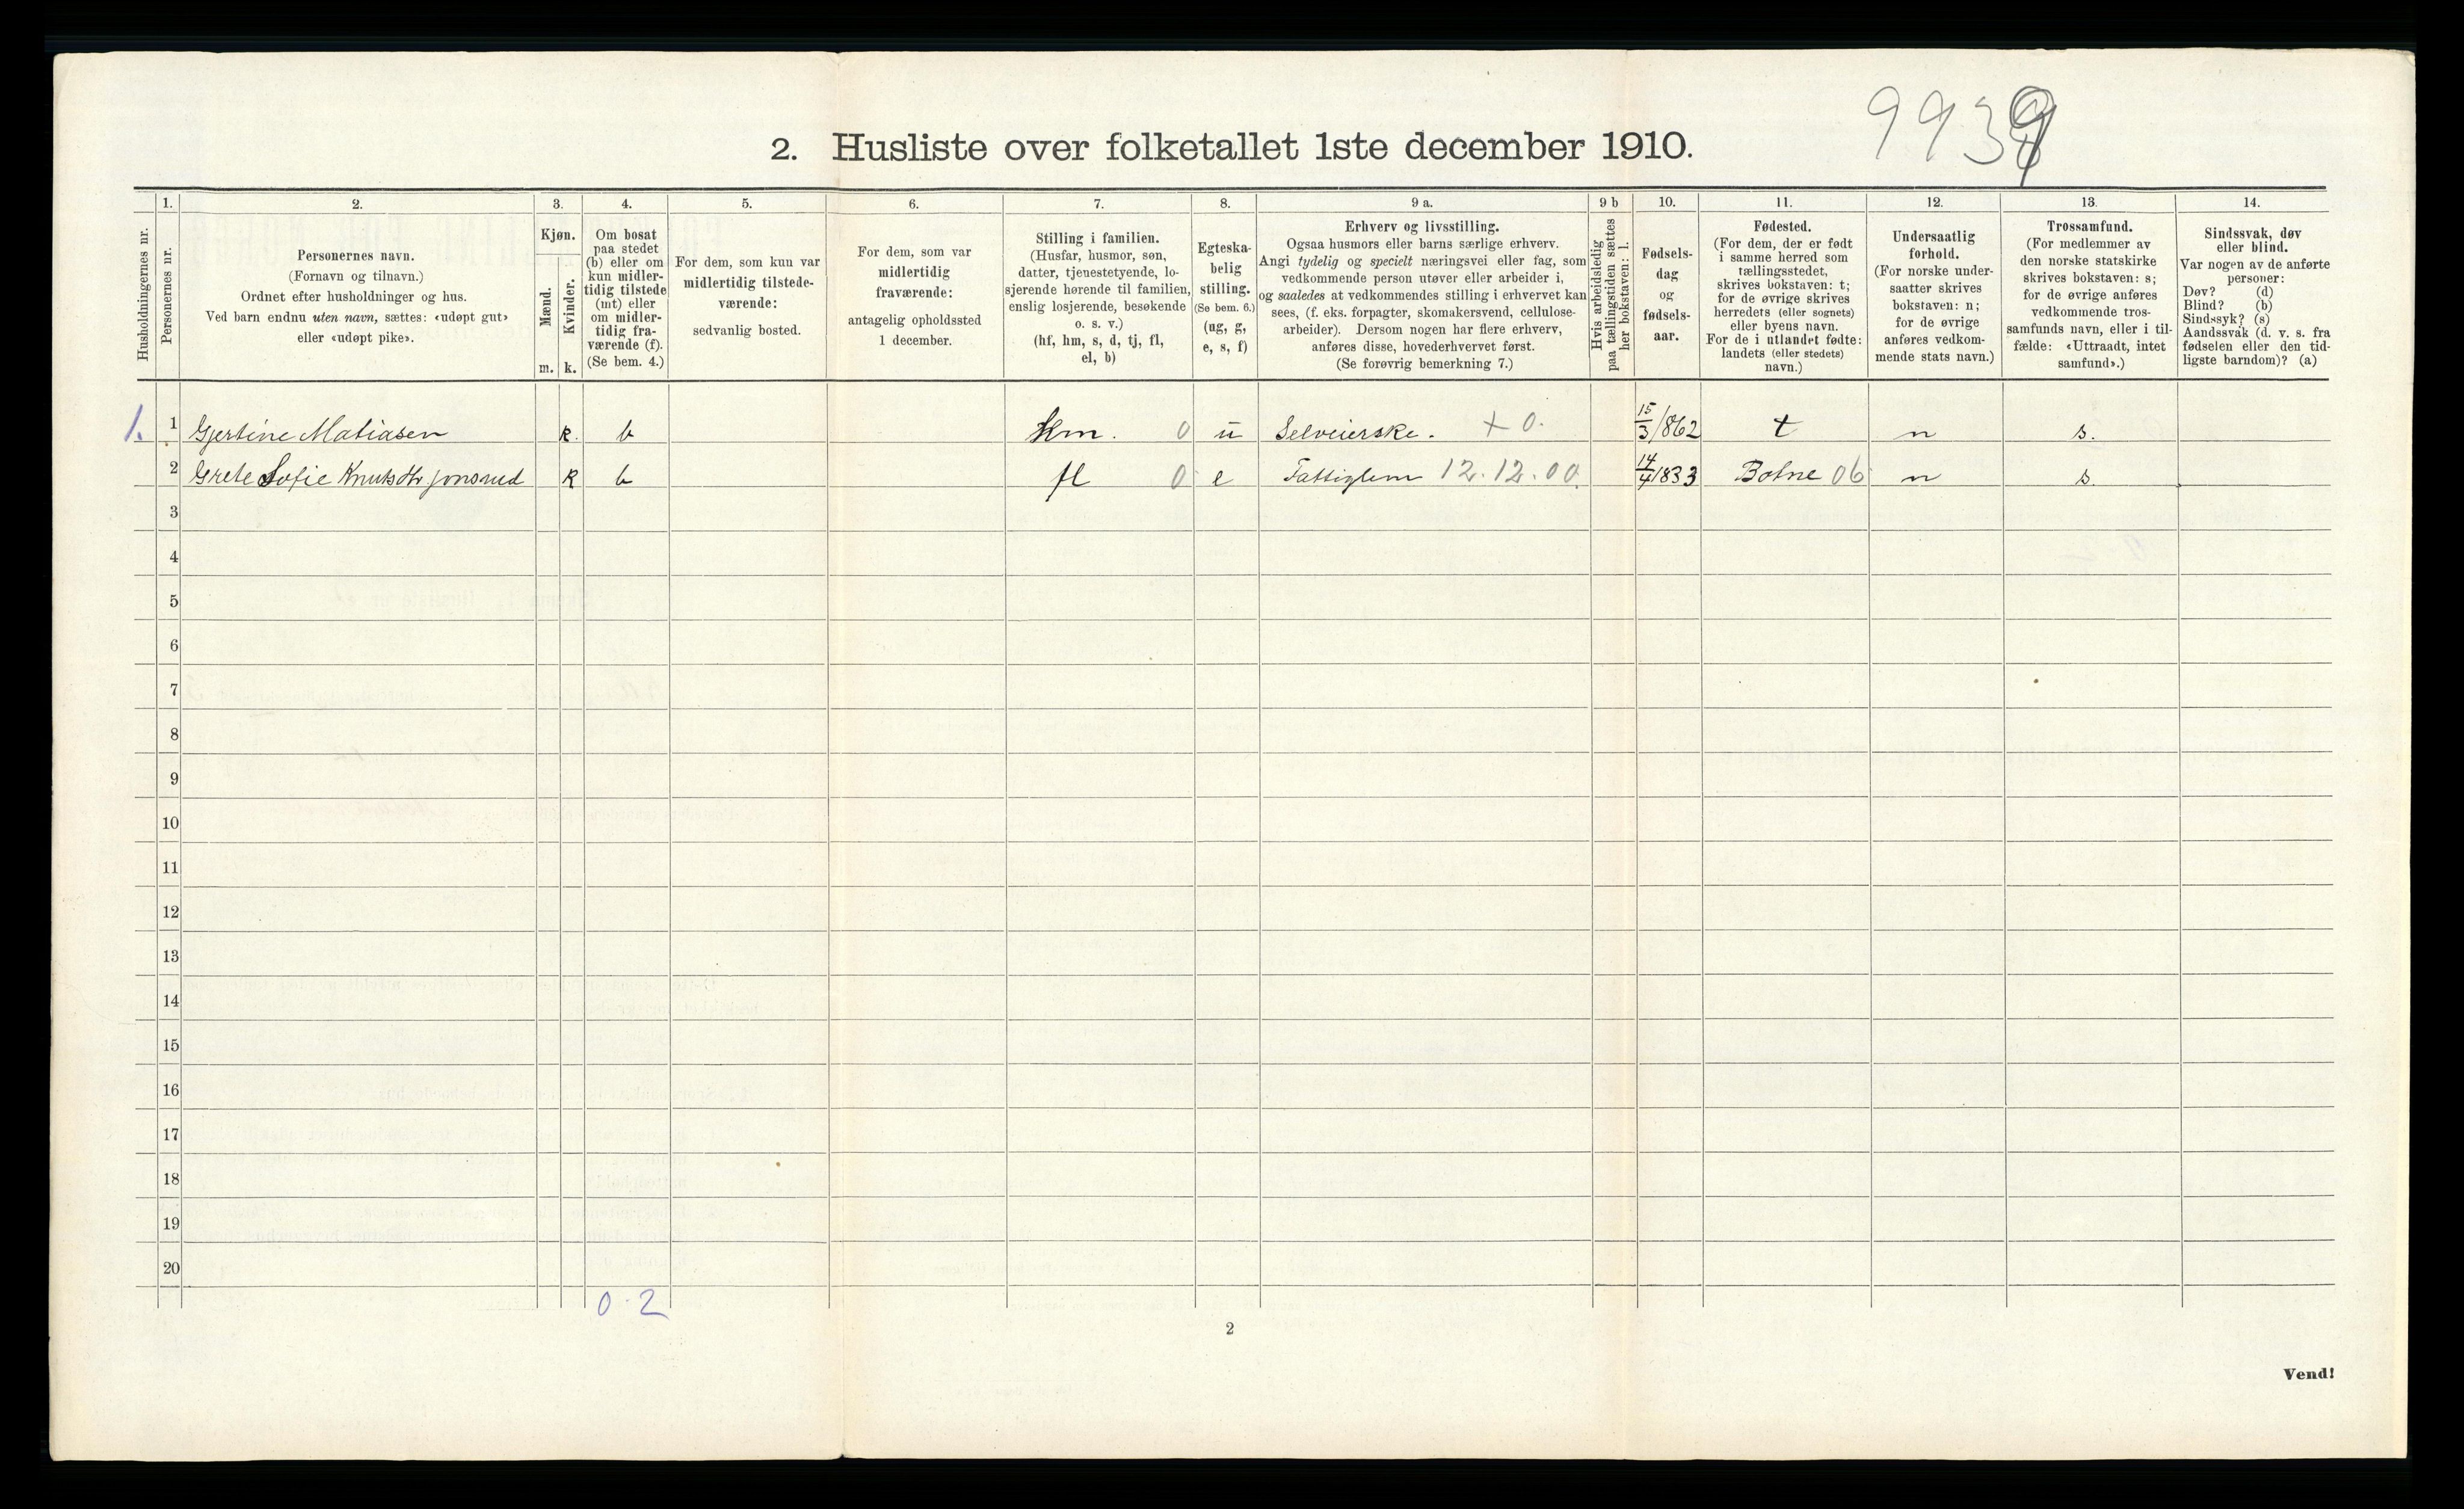 993
2. Husliste over folketallet 1ste december 1910.
Husholdningernes nr.
1.
Personernes nr.
2.
Personernes navn.
(Fornavn og tilnavn.)
Ordnet efter husholdninger og hus.
Ved barn endnu uten navn, sættes: «udøpt gut»
eller «udøpt pike».
3.
Kjøn.
Mænd.
Kvinder.
m. k.
4.
Om bosat
paa stedet
(b) eller om
kun midler-
tidig tilstede
(mt) eller
om midler-
tidig fra-
værende (f).
(Se bem. 4.)
5.
For dem, som kun var
midlertidig tilstede-
værende:
sedvanlig bosted.
6.
For dem, som var
midlertidig
fraværende:
antagelig opholdssted
1 december.
7.
Stilling i familien.
(Husfar, husmor, søn,
datter, tjenestetyende, lo-
sjerende hørende til familien,
enslig losjerende, besøkende
o. s. v.)
(hf, hm, s, d, tj, fl,
el, b)
8.
Egteska-
belig
stilling.
(Se bem. 6.)
(ug, g,
e, s, f)
9 a.
Erhverv og livsstilling.
Ogsaa husmors eller barns særlige erhverv.
Angi tydelig og specielt næringsvei eller fag, som
vedkommende person utøver eller arbeider i,
og saaledes at vedkommendes stilling i erhvervet kan
sees, (f. eks. forpagter, skomakersvend, cellulose-
arbeider). Dersom nogen har flere erhverv,
anføres disse, hovederhvervet først.
(Se forøvrig bemerkning 7.)
9 b
Hvis arbeidsledig
paa tællingstiden sættes
her bokstaven: l.
10.
Fødsels-
dag
og
fødsels-
aar.
11.
Fødested.
(For dem, der er født
i samme herred som
tællingsstedet,
skrives bokstaven: t;
for de øvrige skrives
herredets (eller sognets)
eller byens navn.
For de i utlandet fødte:
landets (eller stedets)
navn.)
12.
Undersaatlig
forhold.
(For norske under-
saatter skrives
bokstaven: n;
for de øvrige
anføres vedkom-
mende stats navn.)
13.
Trossamfund.
(For medlemmer av
den norske statskirke
skrives bokstaven: s;
for de øvrige anføres
vedkommende tros-
samfunds navn, eller i til-
fælde: «Uttraadt, intet
samfund».)
14.
Sindssvak, døv
eller blind.
Var nogen av de anførte
personer:
Døv? (d)
Blind? (b)
Sindssyk? (s)
Aandssvak (d. v. s. fra
fødselen eller den tid-
ligste barndom)? (a)
1. 1 Gjertine Matiasen k. b hm. 0 u Selveierske. + 0. 15/3/862 t n s.
2 Grete Sofie Knutsdtr Jonsrud k b fl 0 e Fattiglem 12.12.00. 14/4 1833 Botne 06 n s.
3
4
5
6
7
8
9
10
11
12
13
14
15
16
17
18
19
20
0-2
2
Vend!